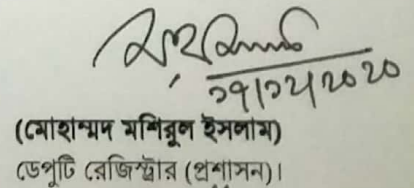 ২৭|১২|২০২০
(মোহাম্মদ মশিবুল ইসলাম)
ডেপুটি রেজিস্ট্রার (প্রশাসন)।